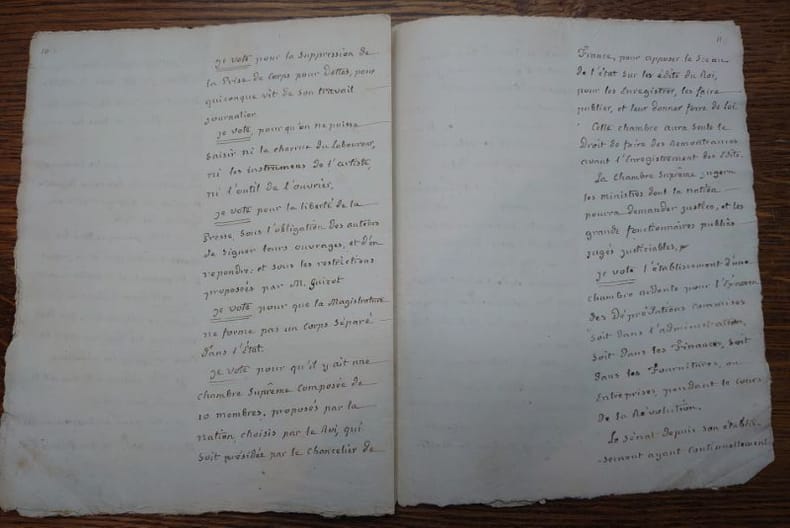 10
je vote pour la suppression de
la Prise de Corps pour Dettes, pour
quiconque vit de son travail
journalier
je vote, pour qu'on ne puisse
Saisir ni la charrue du laboureur,
ni les instrumens de l'artiste,
ni l'outil de l'ouvrier,
je vote pour la liberté de la
Presse, sous l'obligation des auteurs
de Signer leurs ouvrages, et d'en
repondre; et sous les restrictions
proposées par M. Guizot
je vote pour que la Magistrature
ne forme pas un Corps Séparé
dans l'État.
je vote pour qu'il y ait une
Chambre Suprême Composée de
10 membres, proposés par la
nation, choisis par le Roi, qui
soit présidée par le Chancelier de
11
France, pour apposer le Sceau
de l'état sur les édits du Roi,
pour les Enregistrer, les faire
publier, et leur donner force de loi.
Cette chambre aura seule le
Droit de faire des Remontrances
avant l'Enregistrement des Edits.
La Chambre Suprême jugera
les ministres dont la nation
pourra demander justice, et les
grands fonctionnaires publics
jugés justiciables,
je vote l'établissement d'une
chambre ardente pour l'Examen
des Déprédations commises
soit dans l'administration,
soit dans les Finances, soit
dans les Fournitures, ou
Entreprises, pendant le cours
de la Révolution.
Le Sénat depuis son établis-
-sement ayant continuellement